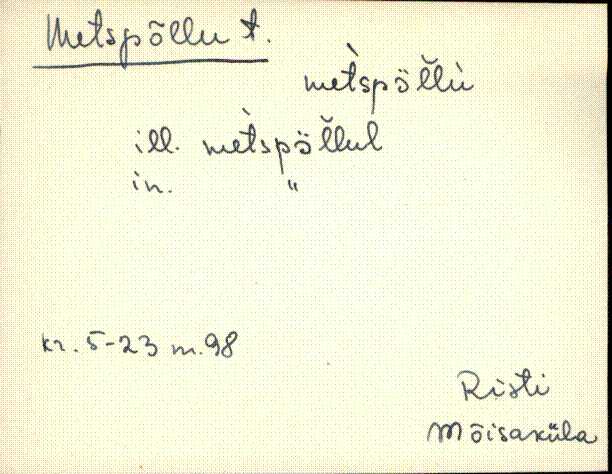 Metspõllu t.
me̍tspö̆l̆lù
ill. me̍tspö̆l̆lul
in. "
kr. 5-23 m. 98
Risti
Mõisaküla